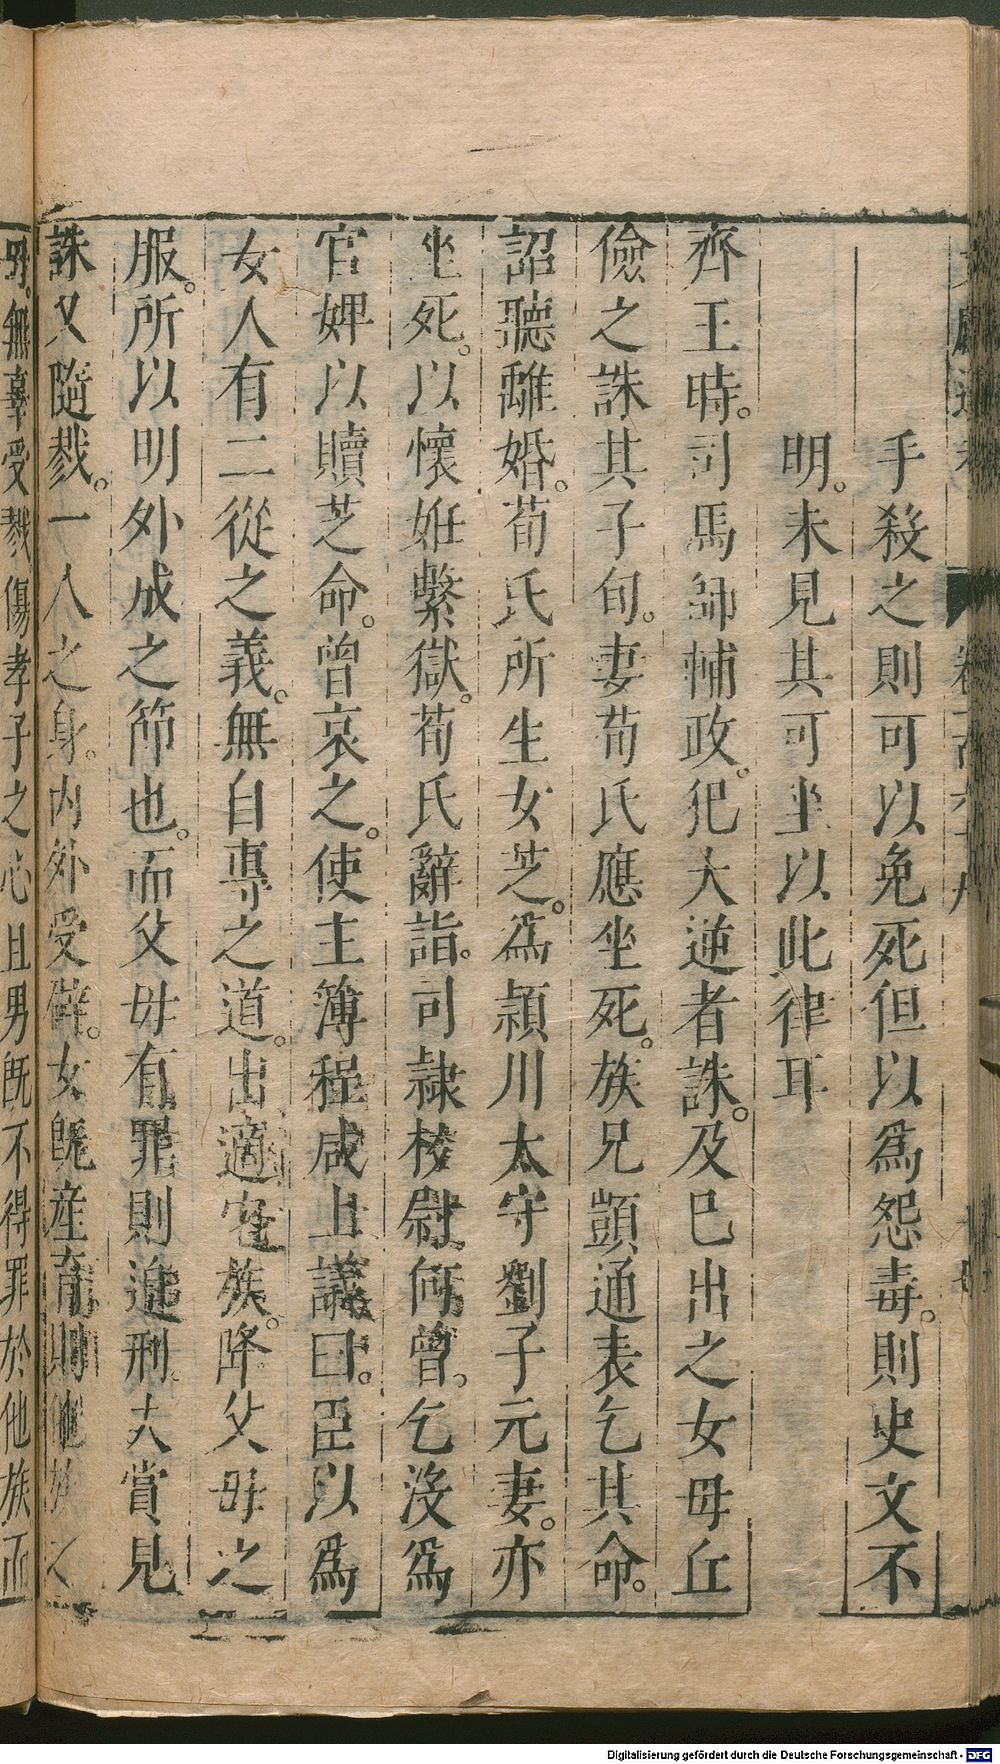 手殺之則可以免死但以爲怨毒。則史文不
明。未見其可坐以此律耳
齊王時。司馬師輔政。犯大逆者誅。及已出之女毋丘
儉之誅其子甸。妻荀氏應坐死。族兄顗通表乞其命。
詔聽離婚。荀氏所生女芝。爲潁川太守劉子元妻。亦
坐死。以懷姙繫獄。荀氏辭詣。司隸校尉何曾。乞沒爲
官婢以贖芝命。曾哀之。使主簿程咸上議曰。臣以爲
女人有三從之義。無自專之道。出適他族。降父母之
服。所以明外成之節也。而父母有罪則追刑。夫黨見
誅又隨戮。一人之身。内外受辟。女旣産育則他族之
母。無辜受戮傷孝子之心且男旣不得罪於他族而
Digitalisierung gefördert durch die Deutsche Forschungsgemeinschaft - DFG